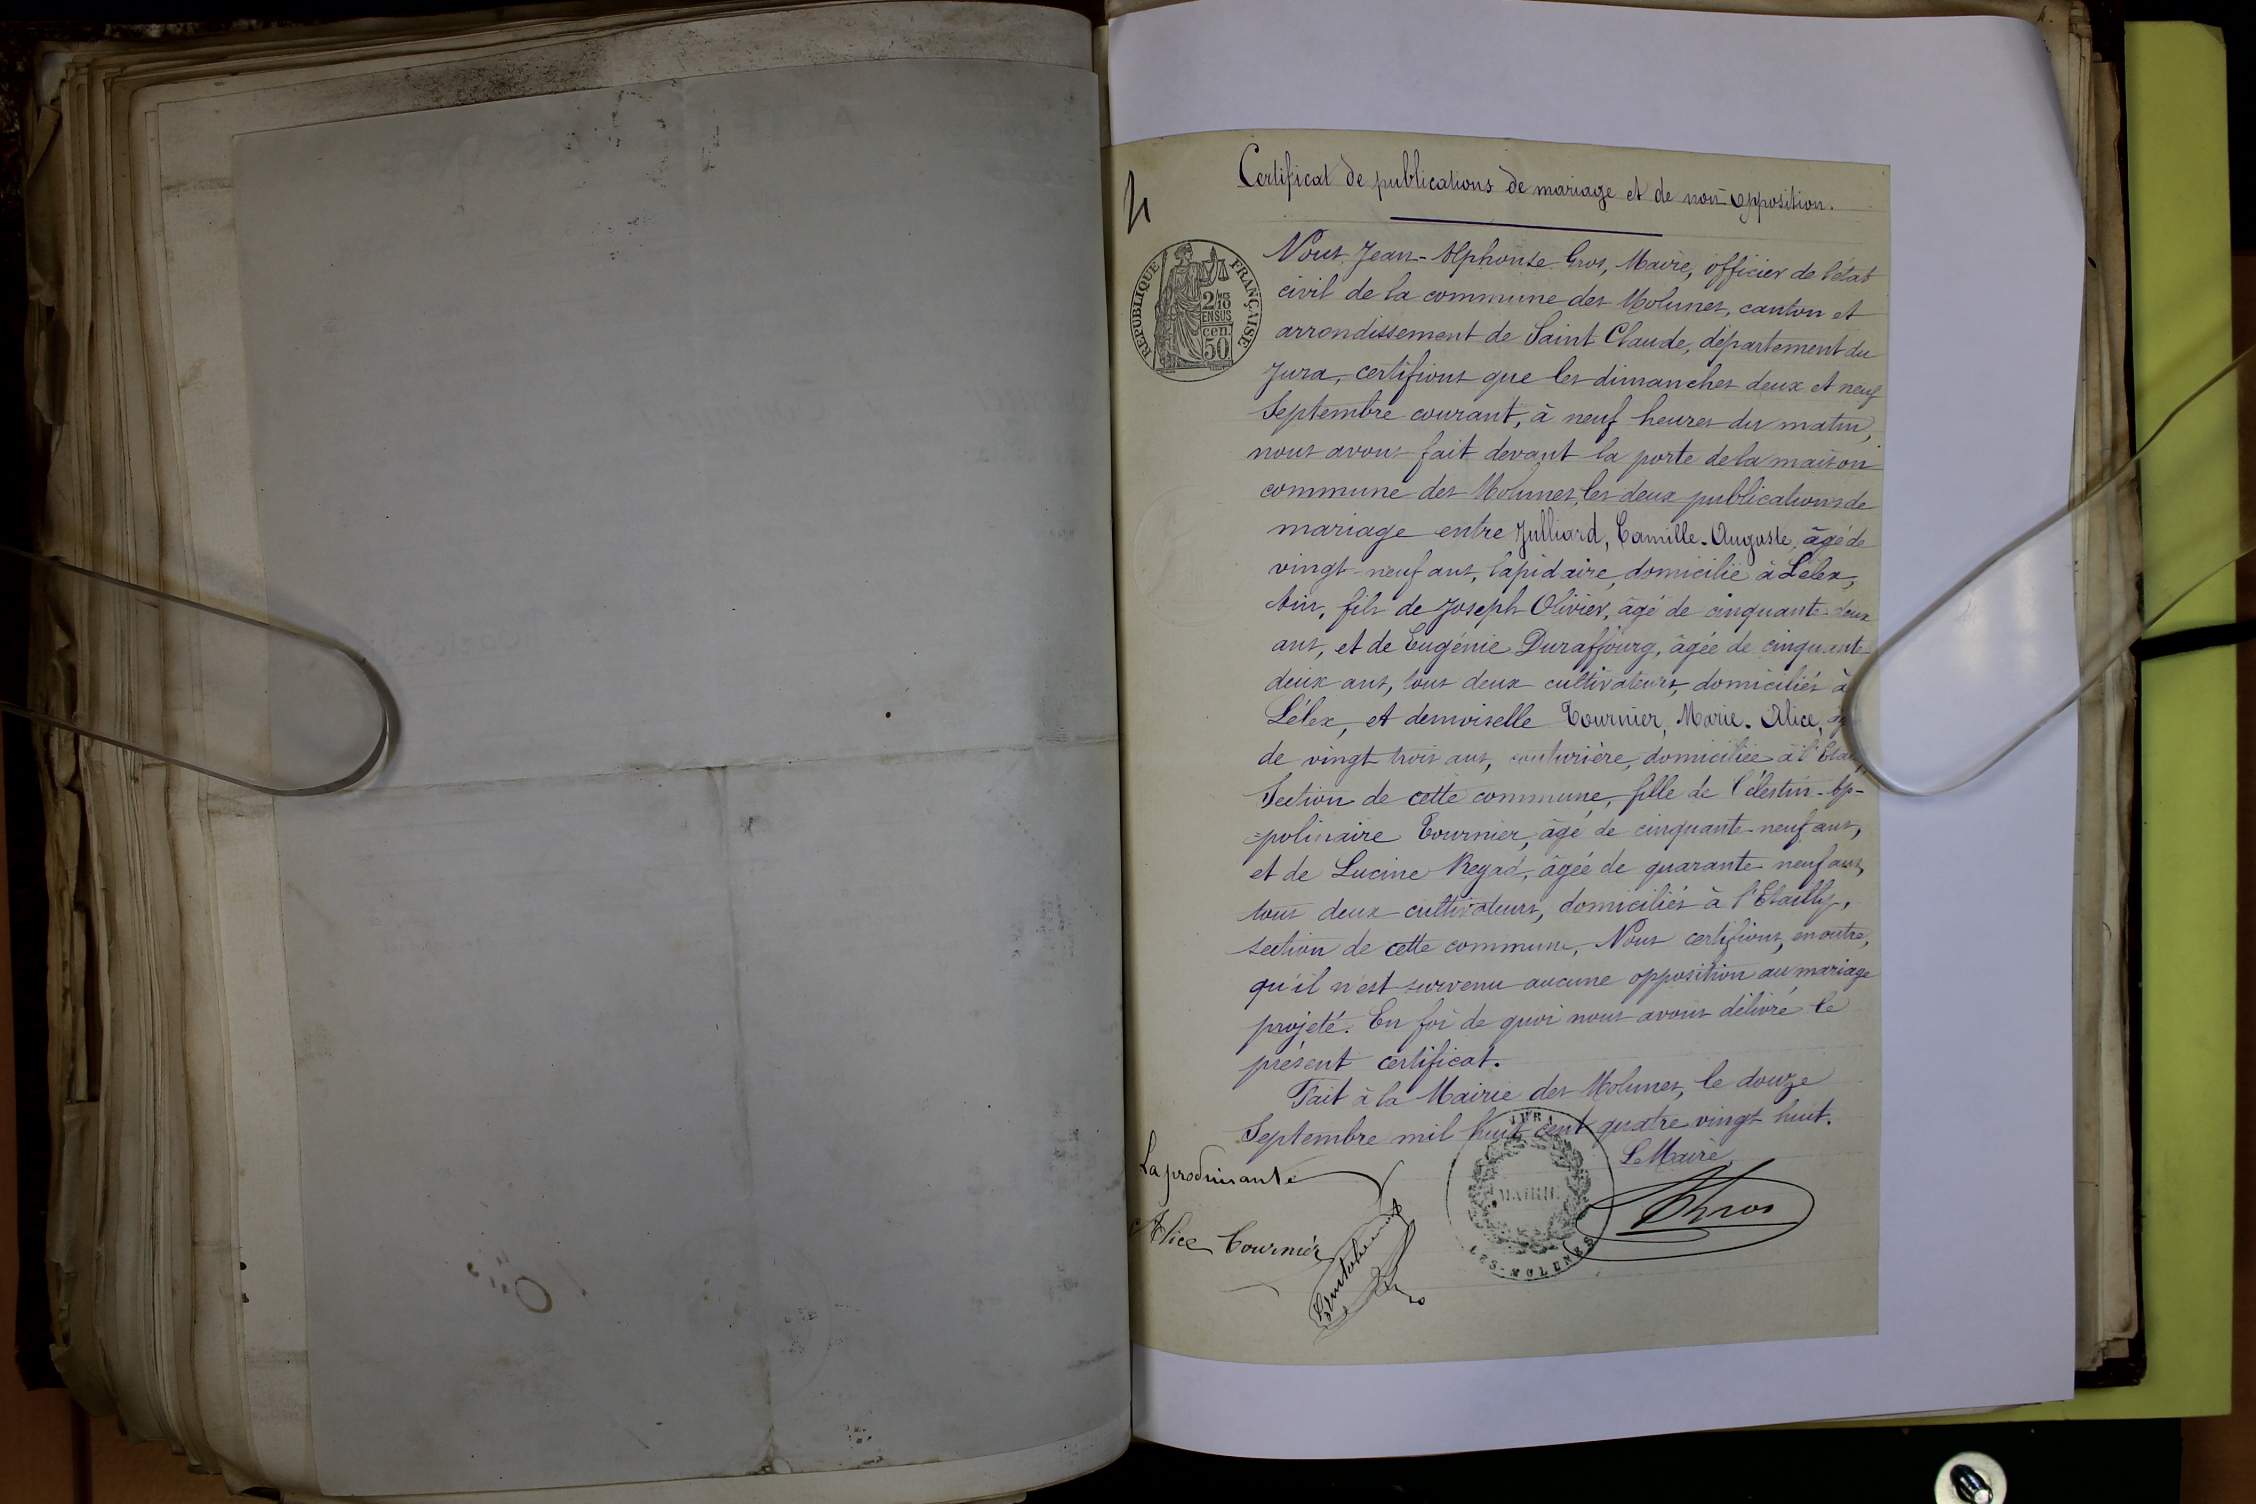 Certificat de publications de mariage et de non-opposition.
RÉPUBLIQUE FRANÇAISE
2/10
EN SUS
cen.
50
Nous Jean-Alphonse Gros, Maire, officier de l'état
civil de la commune des Molunes, canton et
arrondissement de Saint Claude, département du
Jura, certifions que les dimanches deux et neuf
Septembre courant, à neuf heures du matin,
nous avons fait devant la porte de la maison
commune des Molunes, les deux publications de
mariage entre Julliard, Camille-Auguste, âgé de
vingt-neuf ans, lapidaire, domicilié à Lélex,
Ain, fils de Joseph Olivier, âgé de cinquante-deux
ans, et de Eugénie Duraffourg, âgée de cinquante-
deux ans, tous deux cultivateurs, domiciliés à
Lélex, et demoiselle Tournier, Marie-Alice,
de vingt trois ans, couturière, domiciliée à
Section de cette commune, fille de Célestin-Ap-
=polinaire Tournier, âgé de cinquante-neuf ans,
et de Lucine Regad, âgée de quarante neuf ans,
tous deux cultivateurs, domiciliés à l'Etailly,
section de cette commune, Nous certifions, en outre,
qu'il n'est survenu aucune opposition au mariage
projeté. En foi de quoi nous avons délivré le
présent certificat.
Fait à la Mairie des Molunes, le douze
Septembre mil huit cent quatre vingt huit.
Le Maire,
La produisante
Alice Tournier
Gros
JURA
MAIRIE
LES-MOLUNES